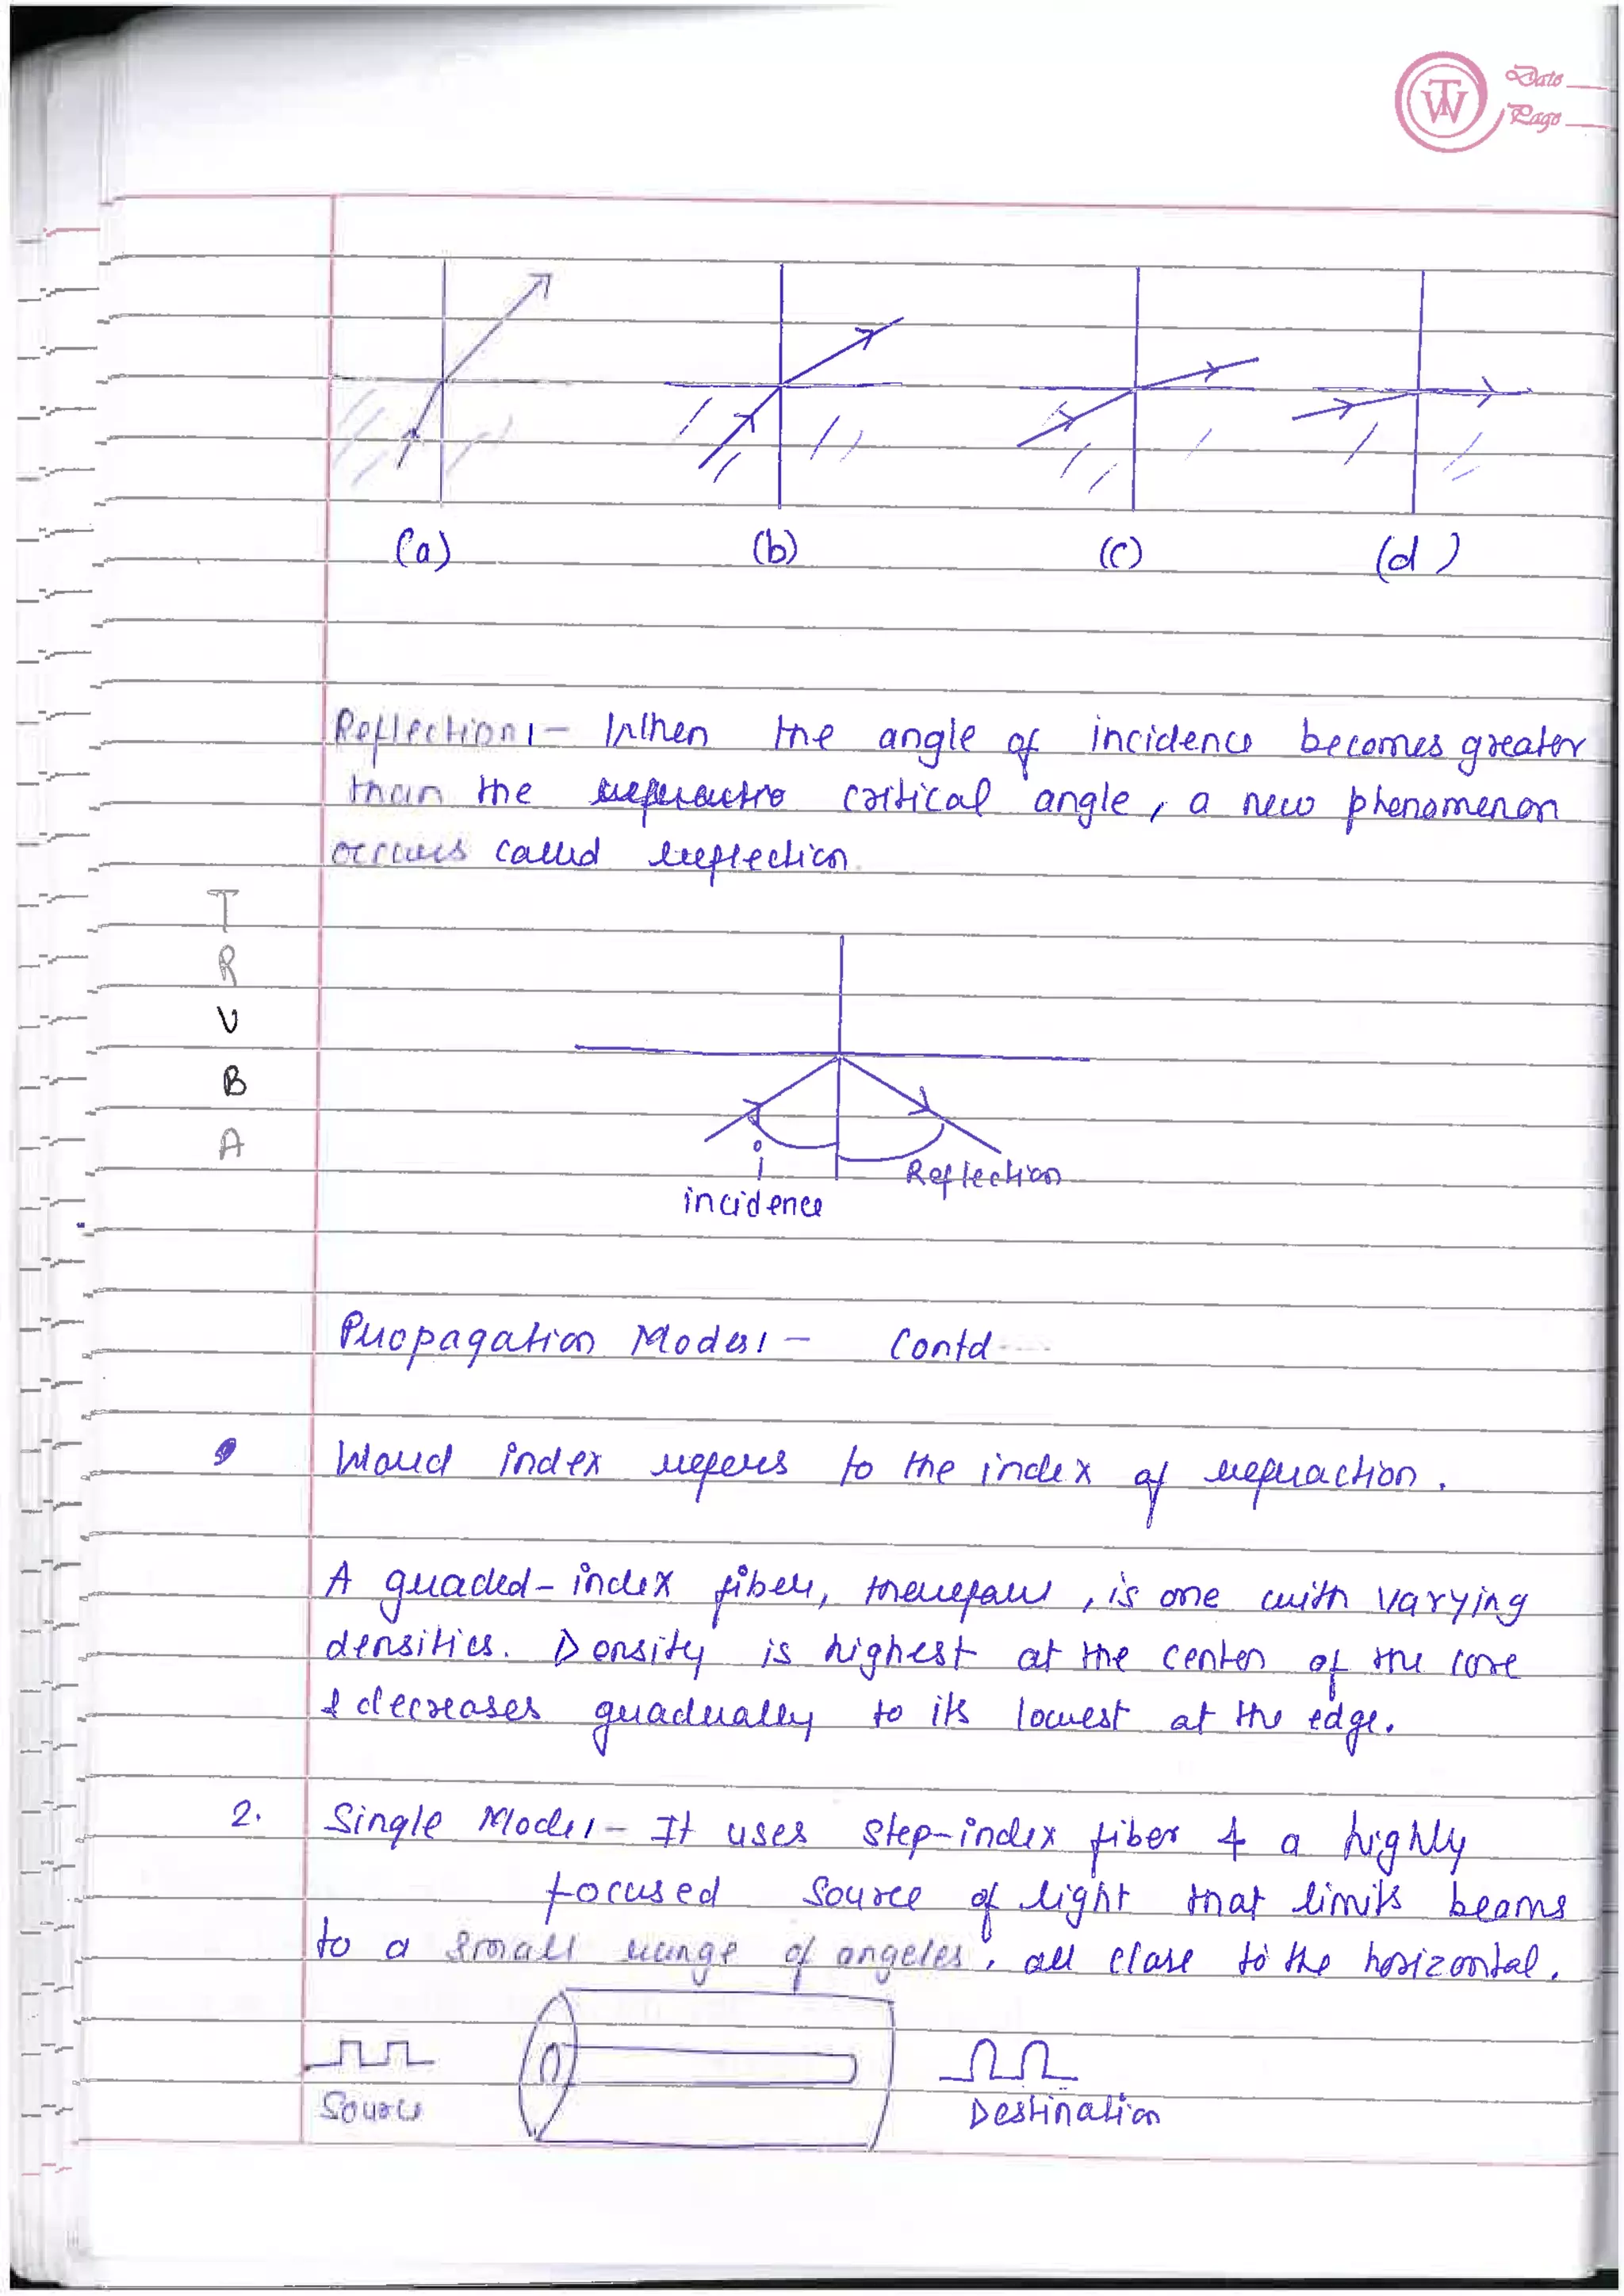 Date
Page
TW
(a) (b) (c) (d)
Reflection:- When the angle of incidence becomes greater
than the critical angle, a new phenomenon
occurs called reflection.
T
R
U
B
A
i
Reflection
incidence
Propagation Modes:- Contd
Word index refers to the index of refraction.
A graded-index fiber, therefore, is one with varying
densities. Density is highest at the center of the core
& decreases gradually to its lowest at the edge.
2. Single Mode:- It uses step-index fiber & a highly
focused source of light that limits beams
to a small range of angeles, all close to the horizontal.
Source
Destination